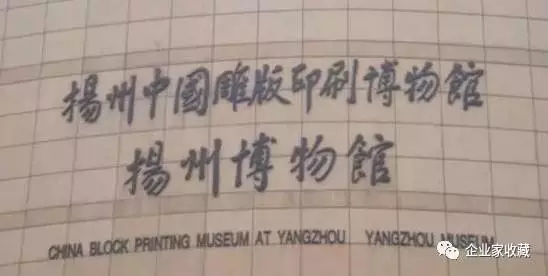 揚州中國雕版印刷博物館
揚州博物館
CHINA BLOCK PRINTING MUSEUM AT YANGZHOU YANGZHOU MUSEUM
企业家收藏